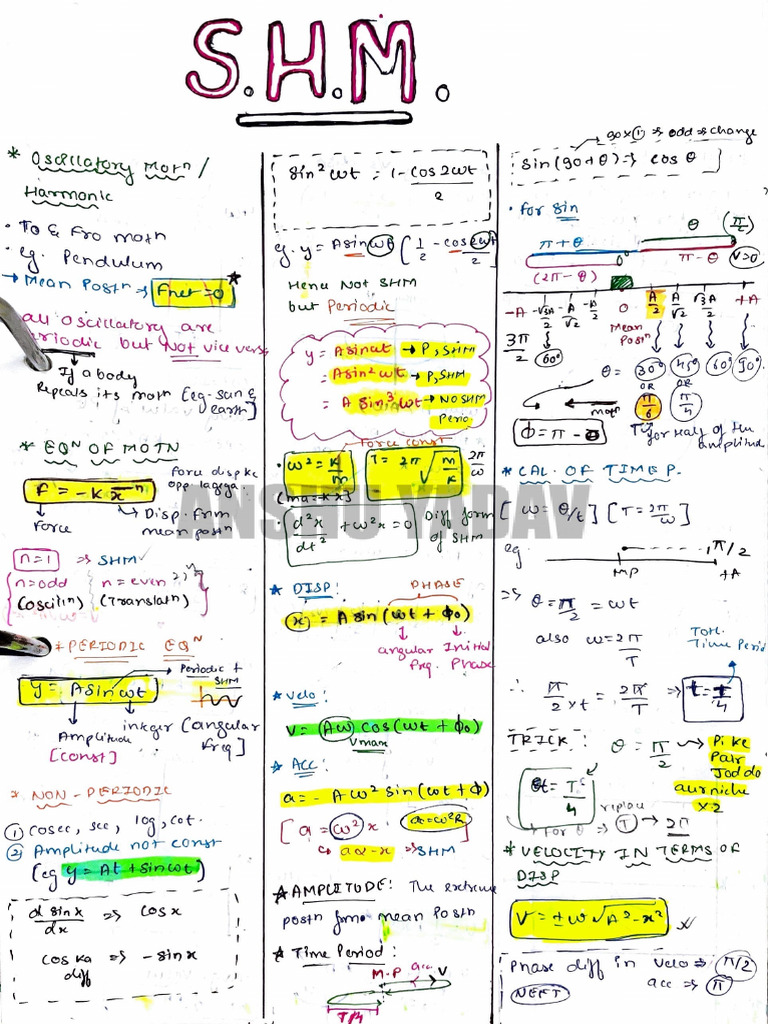 S.H.M.
* Oscillatory Motⁿ /
Harmonic
• To & Fro motn
• eg. Pendulum
→ Mean Postⁿ → Fnet = 0 *
all Oscillatory are
periodic but Not vice versa
If a body
Repeats its motn [eg-sun &
earth]
* EQⁿ OF MOTN
force disp ke
opp lagega
F = -k xⁿ
Force
Disp. from
mean postⁿ
n=1 ⇒ SHM
n=odd
(oscilⁿ)
n=even
(Translatⁿ)
* PERIODIC EQᴺ
Periodic +
SHM
y = A sin ωt
Amplitude
[const]
integer [angular
freq]
* NON-PERIODIC
① cosec, sec, log, cot.
② Amplitude not const
(eg y = At + sin ωt)
d sinx / dx ⇒ cosx
cos ka diff ⇒ -sinx
sin²ωt = 1 - cos2ωt / 2
eg. y = A sin ωt [1/2 - cos2ωt / 2]
Hence Not SHM
but Periodic
y = A sin ωt → P, SHM
= A sin² ωt → P, SHM
= A sin³ ωt → NO SHM
Perio
force const
• ω² = k/m
T = 2π √m/k
2π/ω
(ma = -kx)
• d²x/dt² + ω²x = 0
Diff form
of SHM
ANSHU YADAV
* DISP:
PHASE
x = A sin (ωt + ϕ₀)
angular
frq.
Initial
Phase
* Velo:
V = (Aω) cos (ωt + ϕ₀)
Vmax
* Acc:
a = - Aω² sin (ωt + ϕ)
[a = ω² x
a = ω²R
a α -x ⇒ SHM
* AMPLITUDE: The extreme
postn from mean Postn
* Time Period:
M.P acc V
T/4
90×① ⇒ odd ⇒ change
sin(90+θ) ⇒ cos θ
• for Sin
π+θ
θ
(π/2)
(2π-θ)
0°
π-θ
V>0
-A -√3A/2 -A/√2 -A/2 0 A/2 A/√2 √3A/2 +A
Mean
Posⁿ
3π/2
60°
θ = 30° 45° 60° 90°
OR OR
π/6 π/4
motn
ϕ = π - θ
for half of the
amplitude
* CAL. OF TIME P.
[ω = θ/t] [T = 2π/ω]
eg
π/2
MP
+A
⇒ θ = π/2 = ωt
also ω = 2π/T
Totl.
Time Period
∴ π/2×t = 2π/T ⇒ t = T/4
TRICK: θ = π/2
Pi ke
Pair
Jod do
aur niche
×2
t = T/4
replace
for θ ⇒ T → 2π
* VELOCITY IN TERMS OF
DISP
V = ± ω √A² - x²
Phase diff in velo ⇒ π/2
acc ⇒ π
NEET